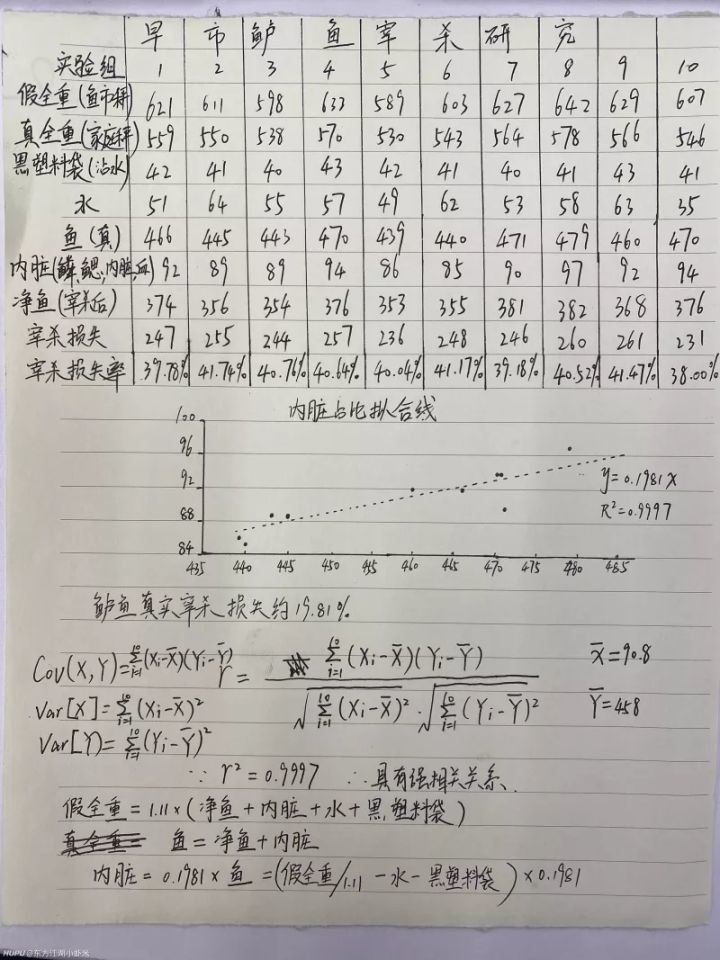 早 市 鲈 鱼 宰 杀 研 究
实验组 1 2 3 4 5 6 7 8 9 10
假全重(鱼市秤) 621 611 598 633 589 603 627 642 629 607
真全重(家庭秤) 559 550 538 570 530 543 564 578 566 546
黑塑料袋(沾水) 42 41 40 43 42 41 40 41 43 41
水 51 64 55 57 49 62 53 58 63 35
鱼(真) 466 445 443 470 439 440 471 479 460 470
内脏(鳞,鳃,内脏,血) 92 89 89 94 86 85 90 97 92 94
净鱼(宰杀后) 374 356 354 376 353 355 381 382 368 376
宰杀损失 247 255 244 257 236 248 246 260 261 231
宰杀损失率 39.78% 41.74% 40.76% 40.64% 40.04% 41.17% 39.18% 40.52% 41.47% 38.00%
内脏占比拟合线
100
96
92
88
84
y=0.1981x
R²=0.9997
435 440 445 450 455 460 465 470 475 480 485
鲈鱼真实宰杀损失约19.81%
Cov(X,Y)=∑_{i=1}^{10}(Xi-X̄)(Yi-Ȳ)
r = ∑_{i=1}^{10}(Xi-X̄)(Yi-Ȳ) / √∑_{i=1}^{10}(Xi-X̄)² · √∑_{i=1}^{10}(Yi-Ȳ)²
x̄=90.8
Var[X]=∑_{i=1}^{10}(Xi-X̄)²
Ȳ=458
Var[Y]=∑_{i=1}^{10}(Yi-Ȳ)²
∵ r²=0.9997 ∴具有强相关关系.
假全重=1.11×(净鱼+内脏+水+黑塑料袋)
真全重= 鱼=净鱼+内脏
内脏=0.1981×鱼=(假全重/1.11-水-黑塑料袋)×0.1981
HUPU@东方江湖小虾米